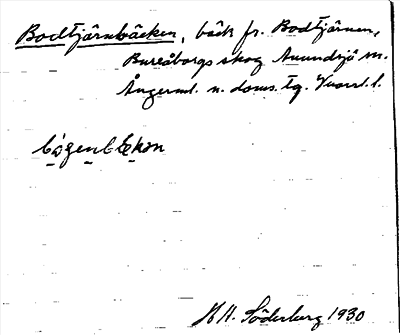 Bodtjärnbäcken, bäck fr. Bodtjärnen,
Bureåborgs skog Anundsjö sn.
Ångerml. n. doms. tg. Vnorrl. l.
H.H. Söderberg 1930